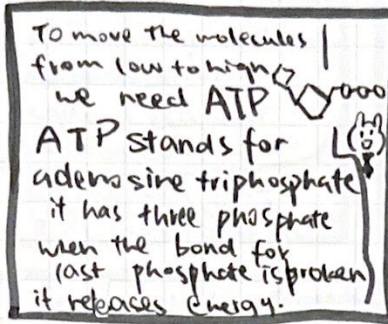 To move the molecules
from low to high
we need ATP
ATP stands for
adenosine triphosphate
it has three phosphate
when the bond for
last phosphate is broken
it releases energy.